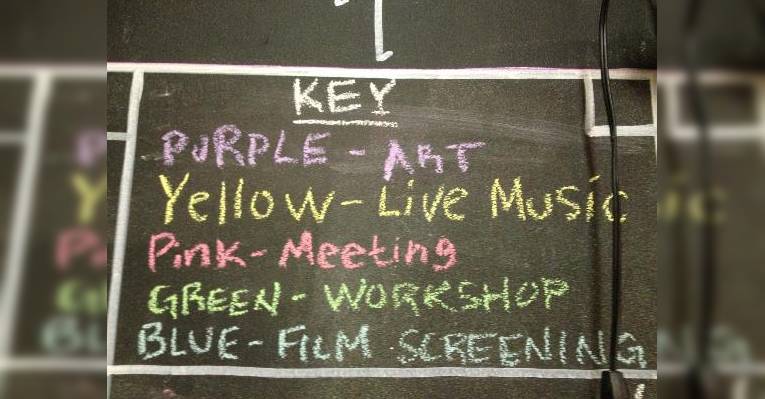 KEY
PURPLE - ART
Yellow - Live Music
Pink - Meeting
GREEN - WORKSHOP
BLUE - FILM SCREENING